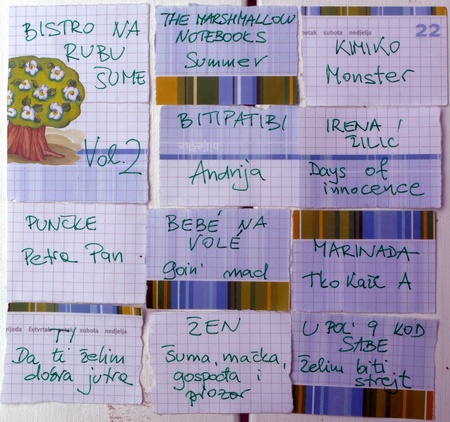 BISTRO NA
RUBU
ŠUME
Vol. 2
THE MARSHMALLOW
NOTEBOOKS
Summer
petak subota nedjelja
22
KIMIKO
Monster
BITIPATIBI
Andrija
IRENA /
ŽILIĆ
Days of
innocence
PUNČKE
Petra Pan
BEBÉ NA
VOLÉ
goin' mad
MARINADA
Tko kaže A
četvrtak subota nedjelja
TI
Da ti želim
dobra jutra
ŽEN
Šuma, mačka,
gospođa i
prozor
U POL' 9 KOD
SABE
želim biti
strejt